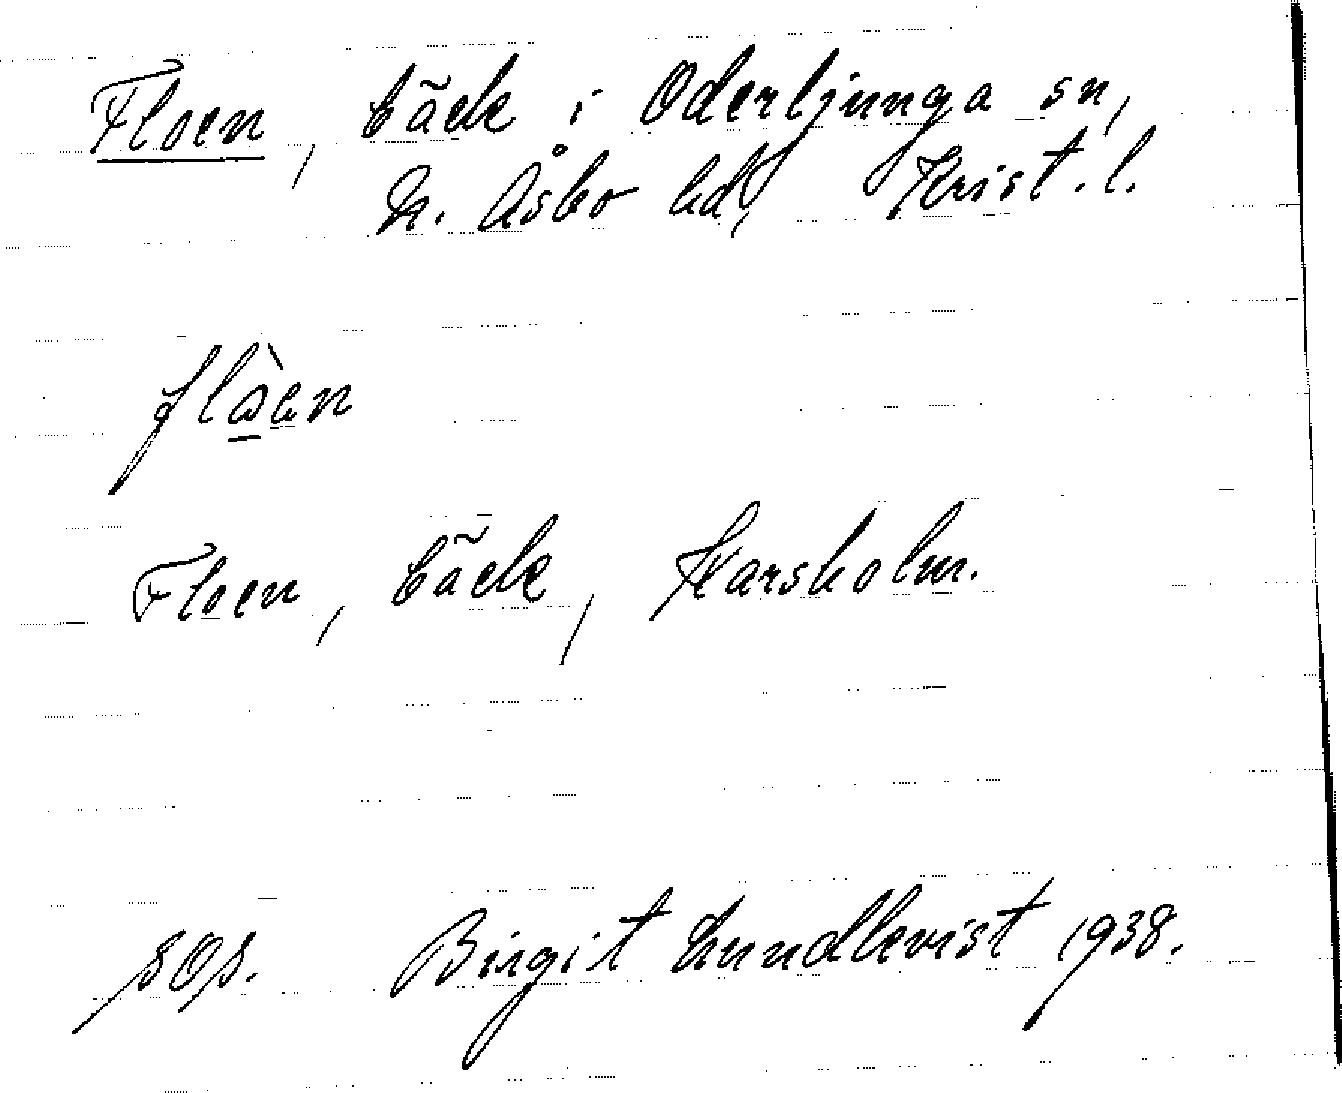 Floen, bäck i Oderljunga sn,
N. Åsbo hd, Krist. l.
Floen, bäck, Harsholm.
SOS. Birgit Lundkvist 1938.